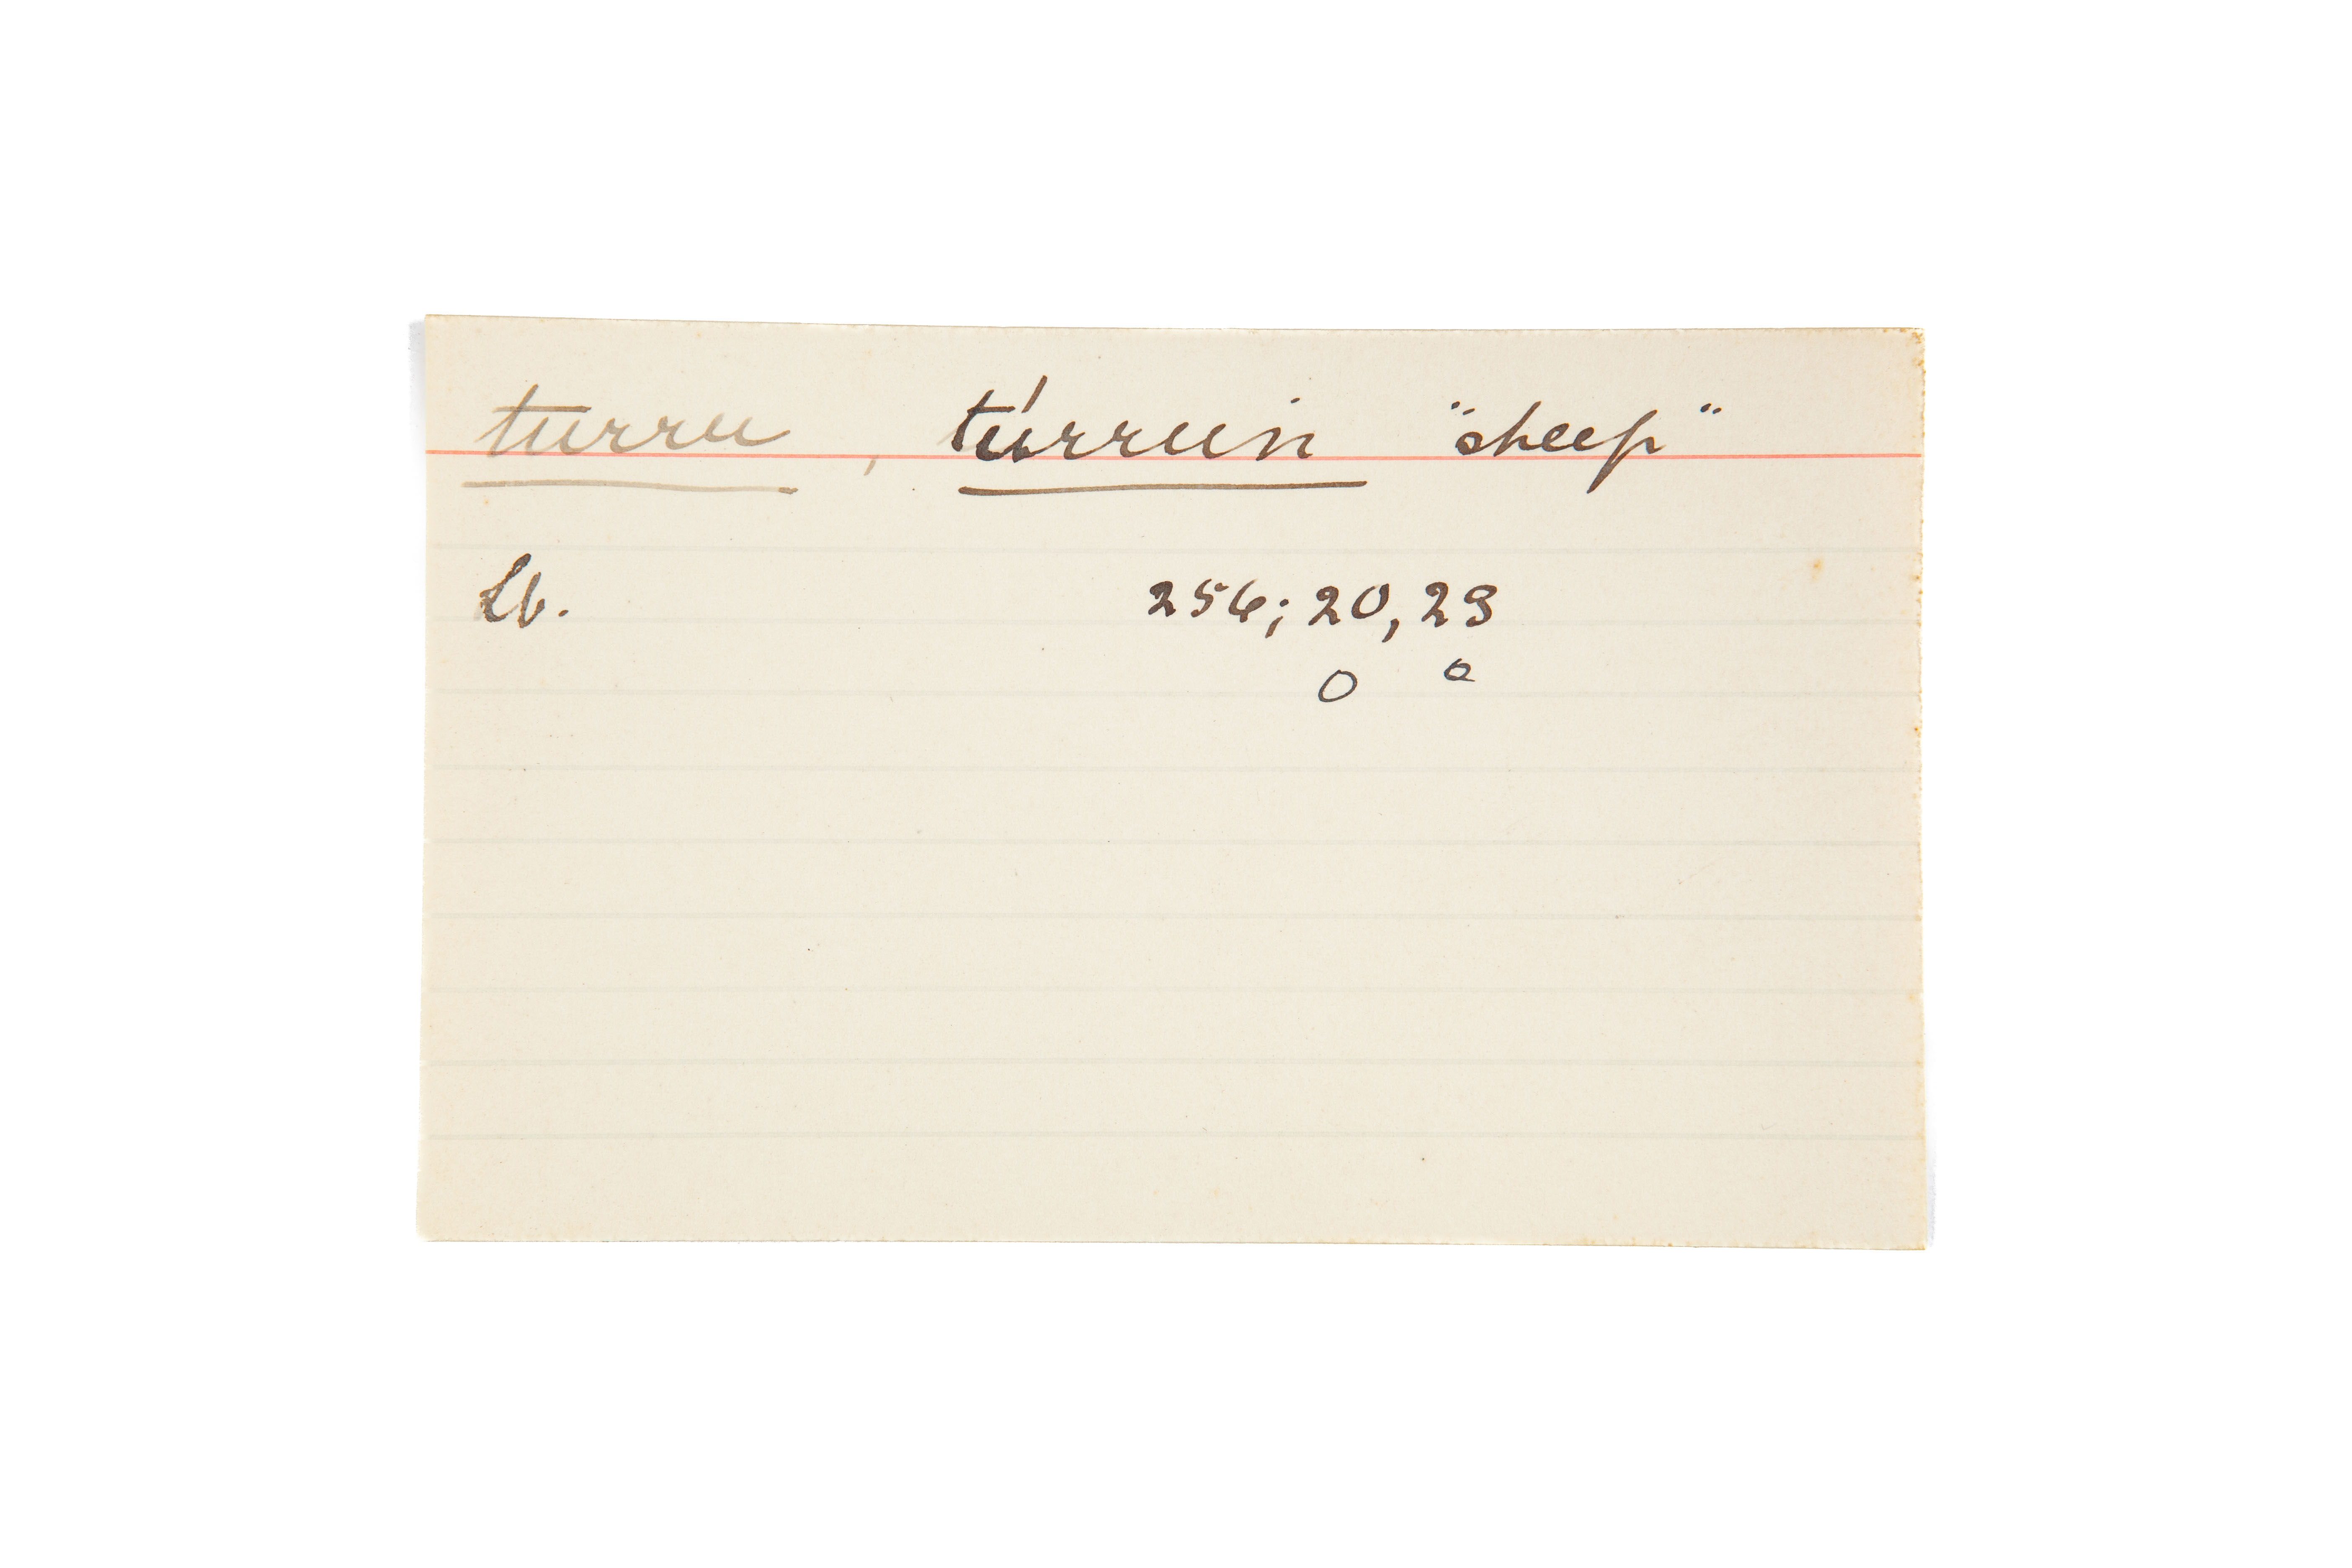 turru, túrruin "sheep"
Lb. 256; 20, 23
o o